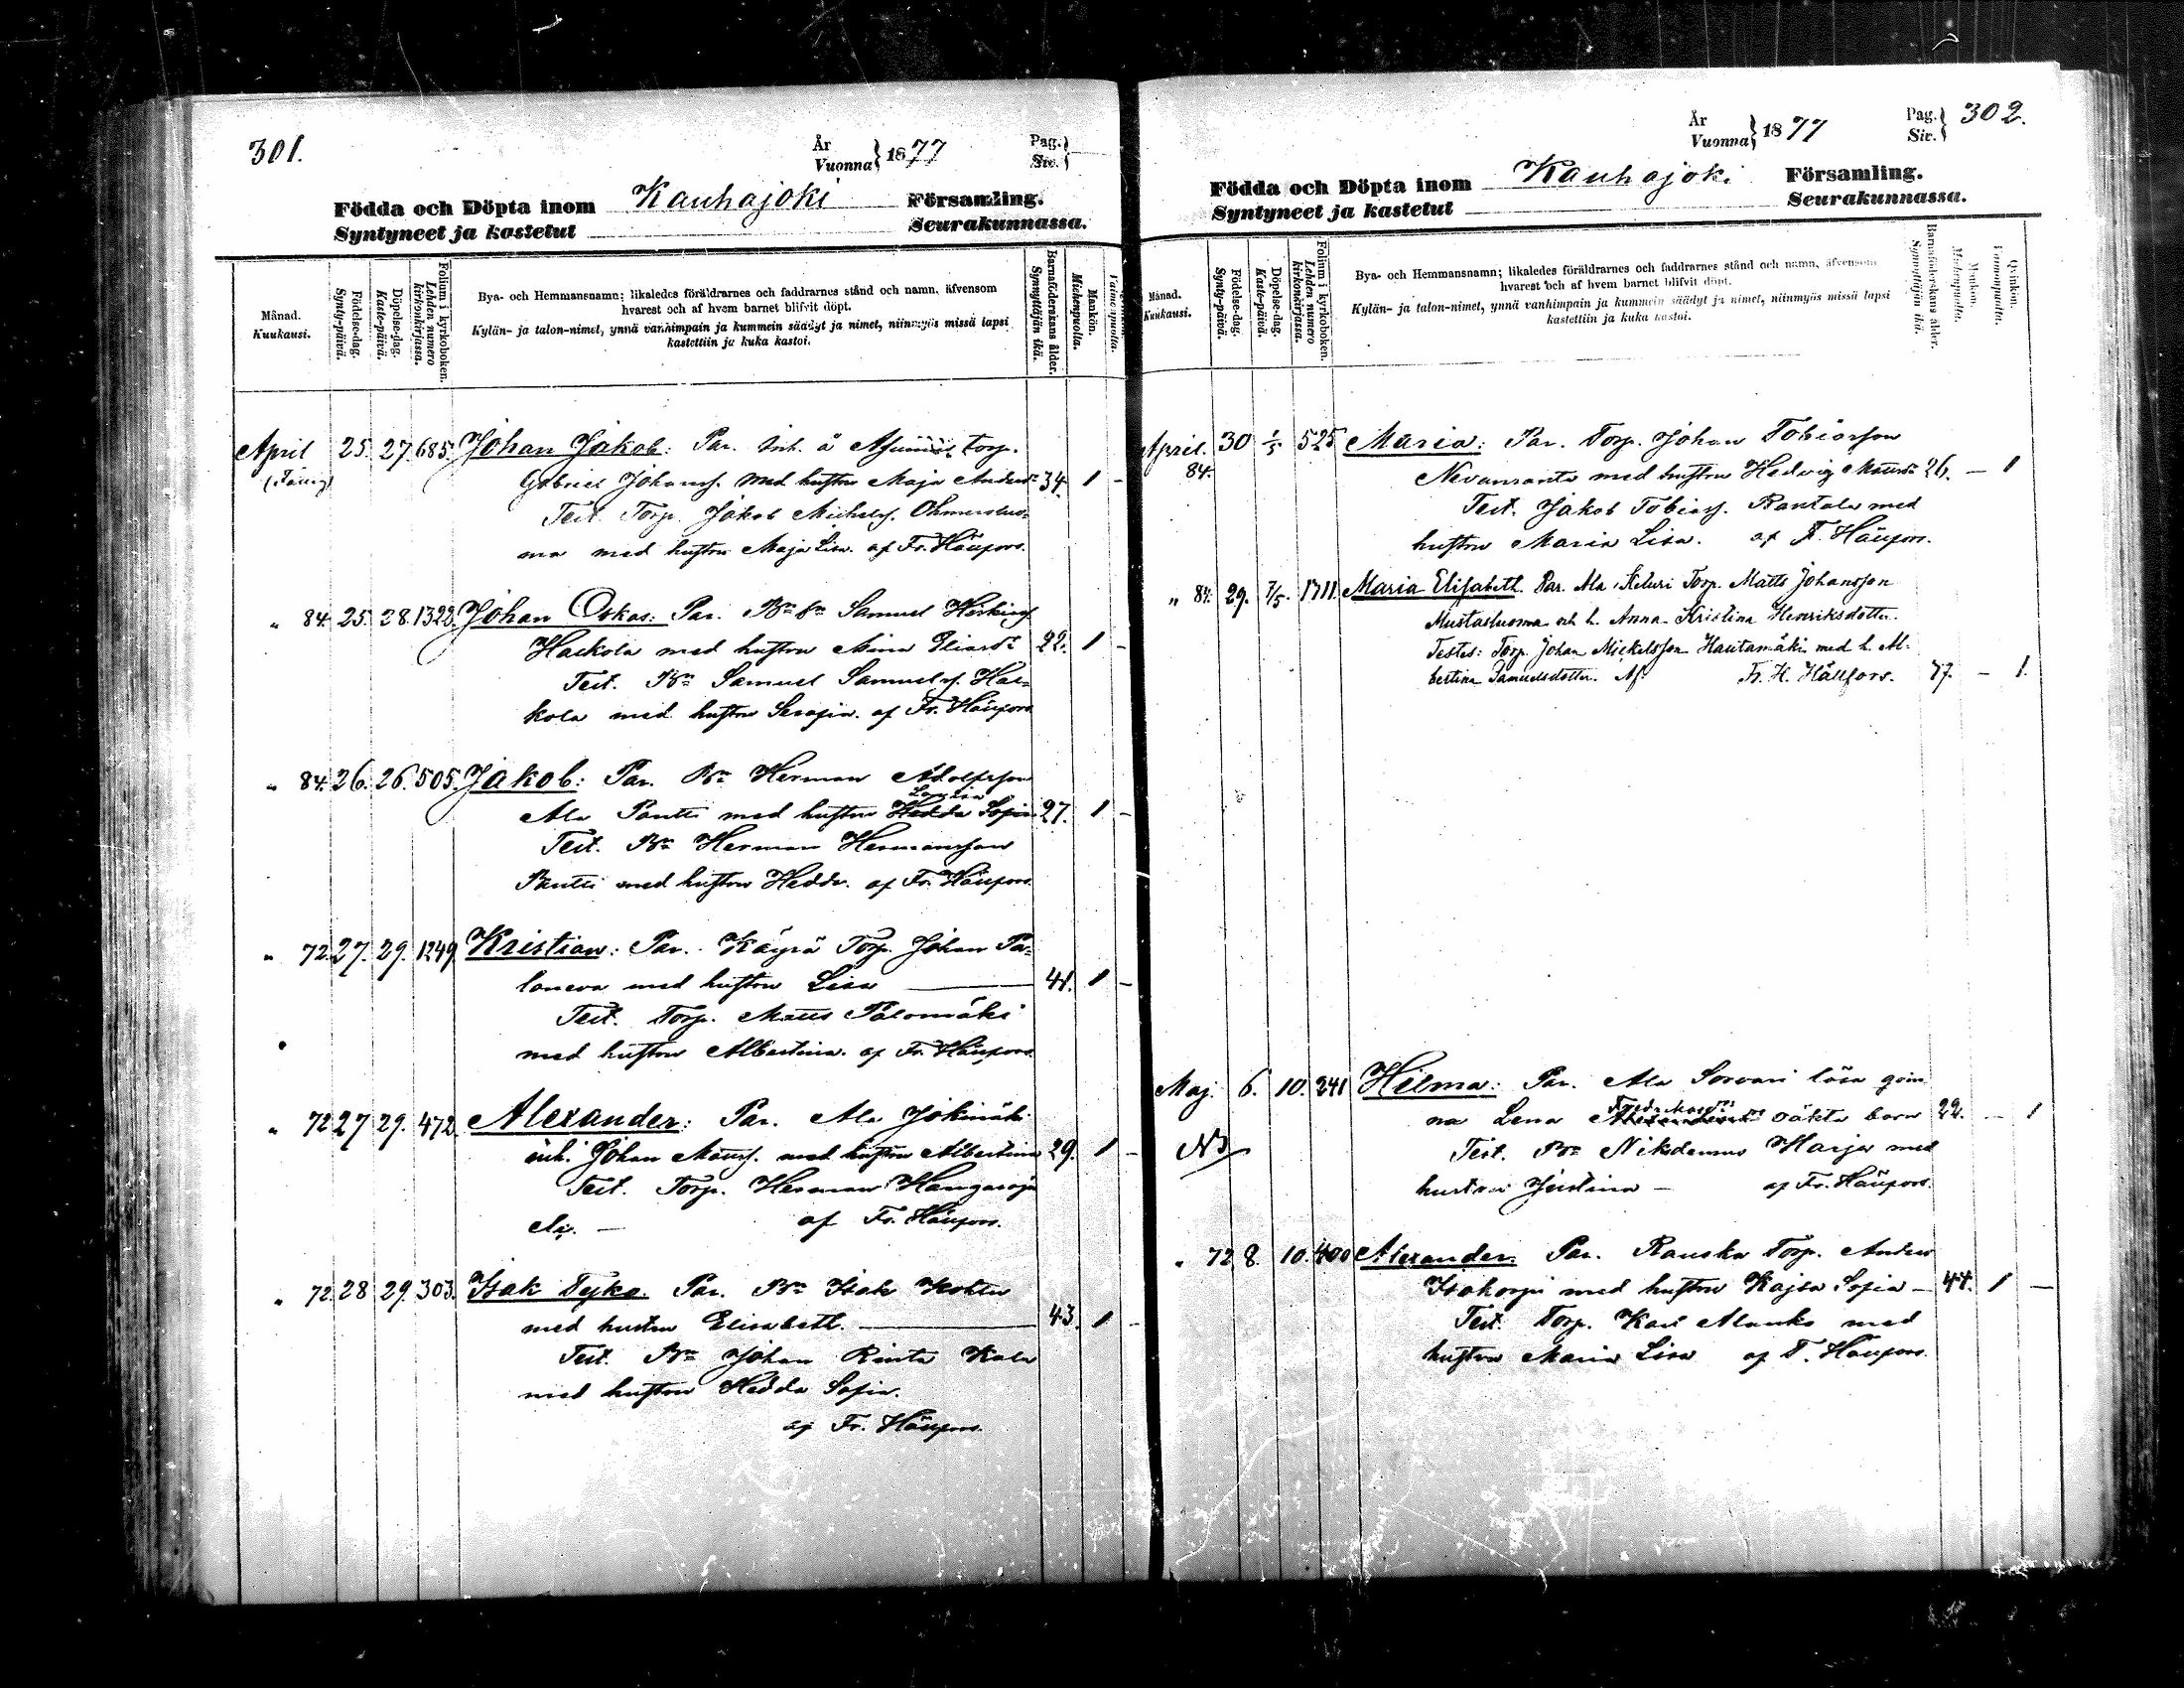 301.
År
Vuonna } 1877
Pag.
Siv. }
Födda och Döpta inom Kauhajoki Församling.
Syntyneet ja kastetut Seurakunnassa.
Månad.
Kuukausi.
Födelse-dag.
Synty-päivä.
Döpelse-dag.
Kaste-päivä.
Folium i kyrkoboken.
Lehden numero kirkonkirjassa.
Bya- och Hemmansnamn; likaledes föräldrarnes och faddrarnes stånd och namn, äfvensom
hvarest och af hvem barnet blifvit döpt.
Kylän- ja talon-nimet, ynnä vanhimpain ja kummein säädyt ja nimet, niinmyös missä lapsi
kastettiin ja kuka kastoi.
Barnaföderskans ålder.
Synnyttäjän ikä.
Mankön.
Miehenpuolta.
Vaimonpuolta.
April 25. 27. 685. Johan Jakob: Par. Inh. å torp.
Gabriel Johans. med hustru Maja Andersdr 34. 1 -
Test. Torp. Jakob Michels.
ma med hustru Maja Lisa. af Fr. Hällfors.
" 84. 25. 28. 1323. Johan Oskar: Par. Bn Sn Samuel
Harkola med hustru 22. 1 -
Test. Bn Samuel Samuels. Har-
kola med hustru Serafia. af Fr. Hällfors
" 84. 26. 26. 505. Jakob: Par. Bn Herman Adolfsson
Lovisa
Ala Pantti med hustru Hedda Sofia 27. 1 -
Test. Bn Herman Hermansson
Pantti med hustru Hedda. af Fr. Hällfors.
" 72. 27. 29. 1249. Kristian: Par. Käyrä Torp. Johan Pa-
loneva med hustru Lisa 41. 1 -
Test. Torp. Matts Palomäki
med hustru Albertina. af Fr. Hällfors.
" 72 27 29. 472. Alexander: Par. Ala Jokimäki
inh. Johan Matts. med hustru Albertina 29. 1 -
Test. Torp. Herman Hangasoja
af Fr. Hällfors.
" 72. 28 29. 303. Isak Par. Bn Isak
med hustru Elisabeth. 43. 1 -
Test. Bn Johan Rinta Kala
med hustru Hedda Sofia.
af Fr. Hällfors.
År
Vuonna } 1877
Pag.
Siv. } 302.
Födda och Döpta inom Kauhajoki Församling.
Syntyneet ja kastetut Seurakunnassa.
Månad.
Kuukausi.
Födelse-dag.
Synty-päivä.
Döpelse-dag.
Kaste-päivä.
Folium i kyrkoboken.
Lehden numero kirkonkirjassa.
Bya- och Hemmansnamn; likaledes föräldrarnes och faddrarnes stånd och namn, äfvensom
hvarest och af hvem barnet blifvit döpt.
Kylän- ja talon-nimet, ynnä vanhimpain ja kummein säädyt ja nimet, niinmyös missä lapsi
kastettiin ja kuka kastoi.
Barnaföderskans ålder.
Synnyttäjän ikä.
Mankön.
Miehenpuolta.
Qvinkön.
Vaimonpuolta.
April. 30 1/5 525 Maria: Par. Torp. Johan Tobiasson
84. Nevanranta med hustru Hedvig Mattsdr 26. - 1
Test. Jakob Tobiass. Rantala med
hustru Maria Lisa. af F. Hällfors.
" 84. 29. 7/5. 1711. Maria Elisabeth. Par. Ala Keturi Torp. Matts Johansson
Mustaluoma och h. Anna Kristina Henriksdotter.
Testes: Torp. Johan Mickelsson Hautamäki med h. Al-
bertina Samuelsdotter. Af Fr. H. Hällfors. 77. - 1.
Maj. 6. 10. 241 Hilma: Par. Ala Sorvari lösa qvin-
na Lena oäkta barn 22. - 1
NB Test. Bn Nikodemus Harja med
hustru Justina - af Fr. Hällfors.
" 72 8. 10. 400 Alexander: Par. Rauska Torp. Anders
Isokorpi med hustru Kajsa Sofia - 44. 1 -
Test. Torp. Karl Alanko med
hustru Maria Lisa af F. Hällfors.